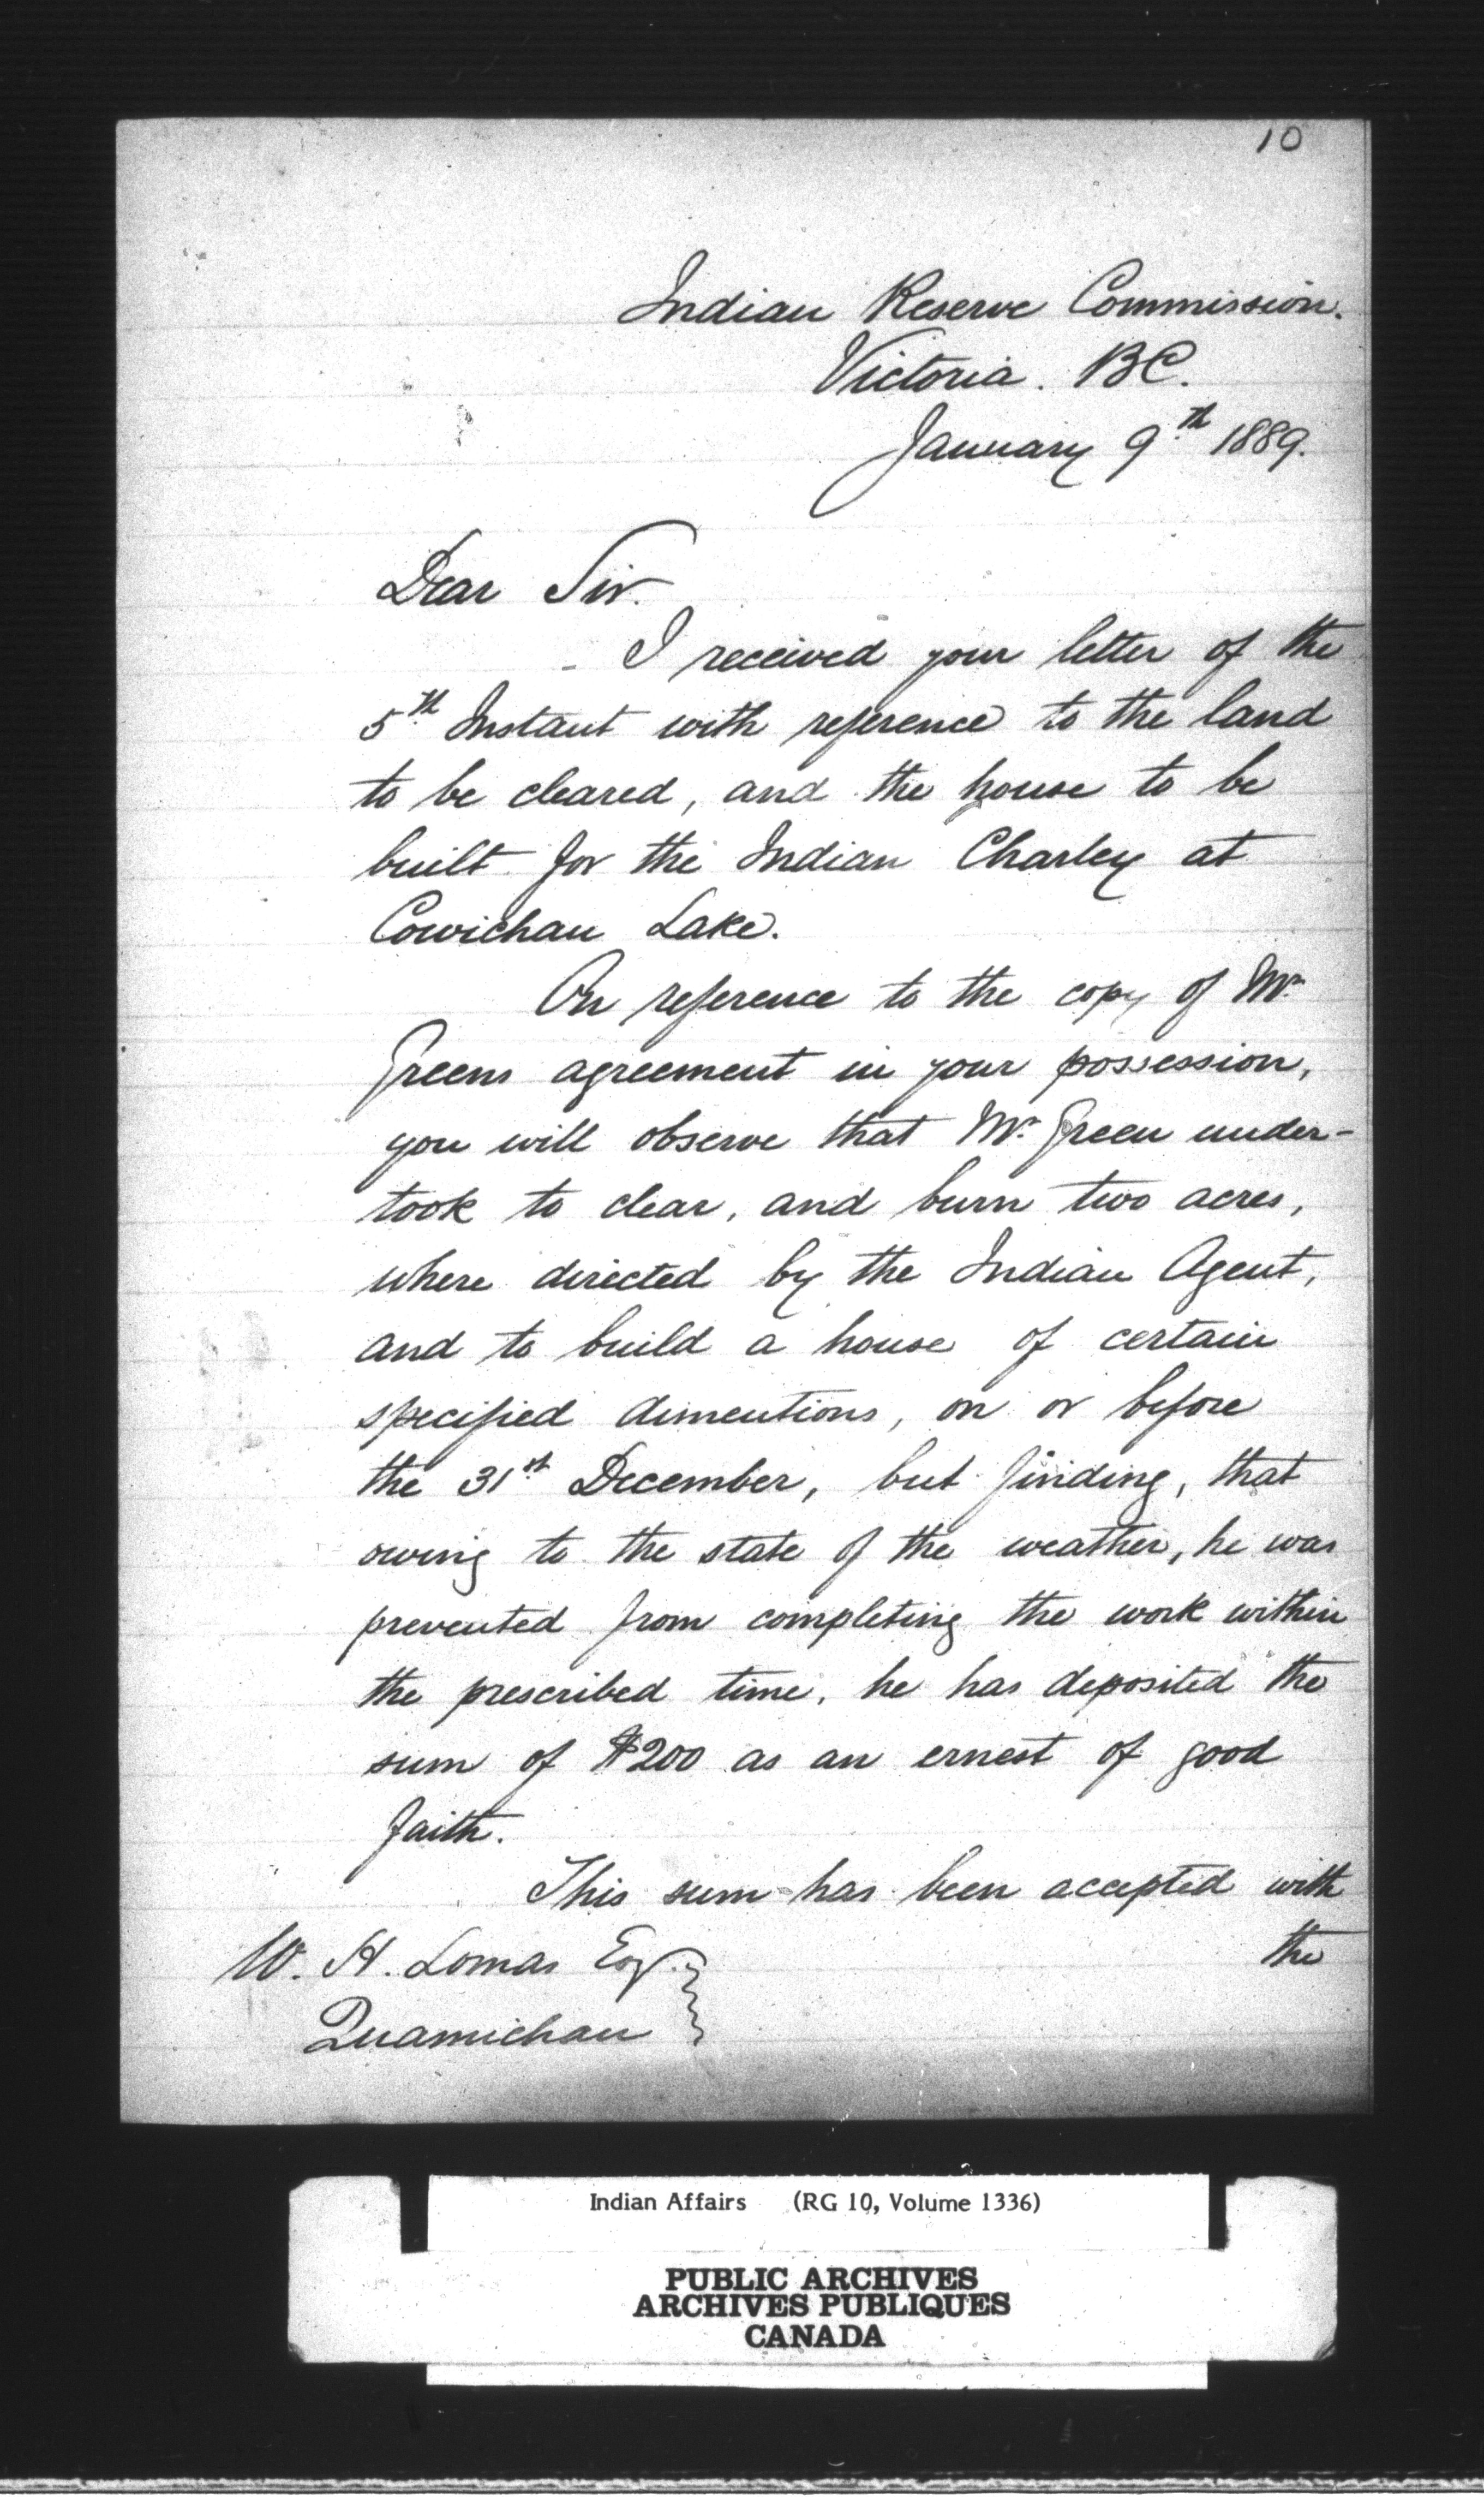 10
Indian Reserve Commission.
Victoria. BC.
January 9th 1889.
Dear Sir.
I received your letter of the
5th Instant with reference to the land
to be cleared, and the house to be
built for the Indian Charley at
Cowichan Lake.
On reference to the copy of Mr
Greens agreement in your possession,
you will observe that Mr. Green under-
took to clear, and burn two acres,
where directed by the Indian Agent,
and to build a house of certain
specified dimentions, on or before
the 31st December, but finding, that
owing to the state of the weather, he was
prevented from completing the work within
the prescribed time, he has deposited the
sum of $200 as an ernest of good
faith.
This sum has been accepted with
the
W. H. Lomas Esq.
Quamichan
Indian Affairs (RG 10, Volume 1336)
PUBLIC ARCHIVES
ARCHIVES PUBLIQUES
CANADA